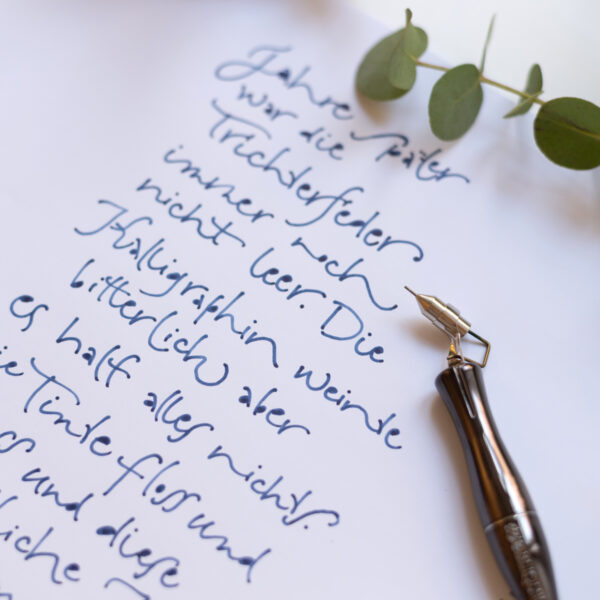 Jahre später
war die
Trichterfeder
immer noch
nicht leer. Die
Kalligraphin weinte
bitterlich aber
es half alles nichts.
Tinte floss und
und diese